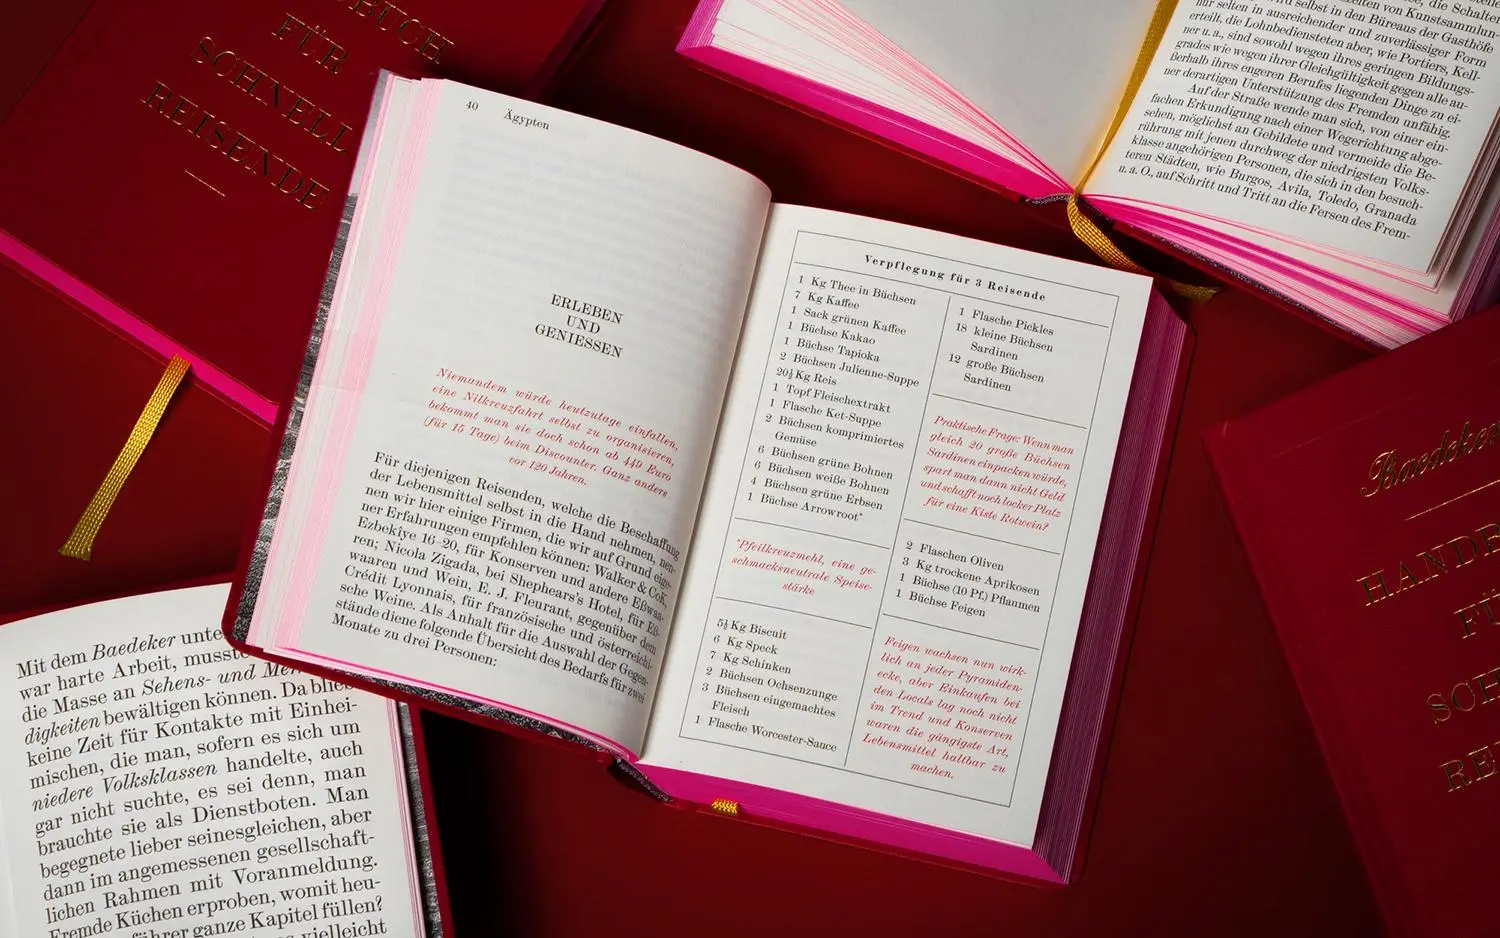 BUCH
FÜR
SCHNELL
REISENDE
40 Ägypten
ERLEBEN
UND
GENIESSEN
Niemandem würde heutzutage einfallen,
eine Nilkreuzfahrt selbst zu organisieren,
bekommt man sie doch schon ab 449 Euro
(für 15 Tage) beim Discounter. Ganz anders
vor 120 Jahren.
Für diejenigen Reisenden, welche die Beschaffung
der Lebensmittel selbst in die Hand nehmen, nen-
nen wir hier einige Firmen, die wir auf Grund eige-
ner Erfahrungen empfehlen können: Walker & Cok,
Ezbekîye 16–20, für Konserven und andere Eßwaa-
ren; Nicola Zigada, bei Shephears's Hotel, für Eß-
waaren und Wein, E. J. Fleurant, gegenüber dem
Crédit Lyonnais, für französische und österreichi-
sche Weine. Als Anhalt für die Auswahl der Gegen-
stände diene folgende Übersicht des Bedarfs für zwei
Monate zu drei Personen:
Verpflegung für 3 Reisende
1 Kg Thee in Büchsen
7 Kg Kaffee
1 Sack grünen Kaffee
1 Büchse Kakao
1 Büchse Tapioka
2 Büchsen Julienne-Suppe
20½ Kg Reis
1 Topf Fleischextrakt
1 Flasche Ket-Suppe
2 Büchsen komprimiertes
Gemüse
6 Büchsen grüne Bohnen
6 Büchsen weiße Bohnen
4 Büchsen grüne Erbsen
1 Büchse Arrowroot*
*Pfeilkreuzmehl, eine ge-
schmacksneutrale Speise-
stärke
5½ Kg Biscuit
6 Kg Speck
7 Kg Schinken
2 Büchsen Ochsenzunge
3 Büchsen eingemachtes
Fleisch
1 Flasche Worcester-Sauce
1 Flasche Pickles
18 kleine Büchsen
Sardinen
12 große Büchsen
Sardinen
Praktische Frage: Wenn man
gleich 20 große Büchsen
Sardinen einpacken würde,
spart man dann nicht Geld
und schafft noch locker Platz
für eine Kiste Rotwein?
2 Flaschen Oliven
3 Kg trockene Aprikosen
1 Büchse (10 Pf.) Pflaumen
1 Büchse Feigen
Feigen wachsen nun wirk-
lich an jeder Pyramiden-
ecke, aber Einkaufen bei
den Locals lag noch nicht
im Trend und Konserven
waren die gängigste Art,
Lebensmittel haltbar zu
machen.
selbst in den Büreaus der Gasthöfe
nur selten in ausreichender und zuverlässiger Form
erteilt, die Lohnbediensteten aber, wie Portiers, Kell-
ner u. a., sind sowohl wegen ihres geringen Bildungs-
grades wie wegen ihrer Gleichgültigkeit gegen alle au-
ßerhalb ihres engeren Berufes liegenden Dinge zu ei-
ner derartigen Unterstützung des Fremden unfähig.
Auf der Straße wende man sich, von einer ein-
fachen Erkundigung nach einer Wegerichtung abge-
sehen, möglichst an Gebildete und vermeide die Be-
rührung mit jenen durchweg der niedrigsten Volks-
klasse angehörigen Personen, die sich in den besuch-
teren Städten, wie Burgos, Avila, Toledo, Granada
u. a. O., auf Schritt und Tritt an die Fersen des Frem-
Mit dem Baedeker unte
war harte Arbeit, musste
die Masse an Sehens- und Mer
digkeiten bewältigen können. Da blieb
keine Zeit für Kontakte mit Einhei-
mischen, die man, sofern es sich um
niedere Volksklassen handelte, auch
gar nicht suchte, es sei denn, man
brauchte sie als Dienstboten. Man
begegnete lieber seinesgleichen, aber
dann im angemessenen gesellschaft-
lichen Rahmen mit Voranmeldung.
Fremde Küchen erproben, womit heu-
führer ganze Kapitel füllen?
vielleicht
Baedeker
HANDB
FÜ
SCH
RE